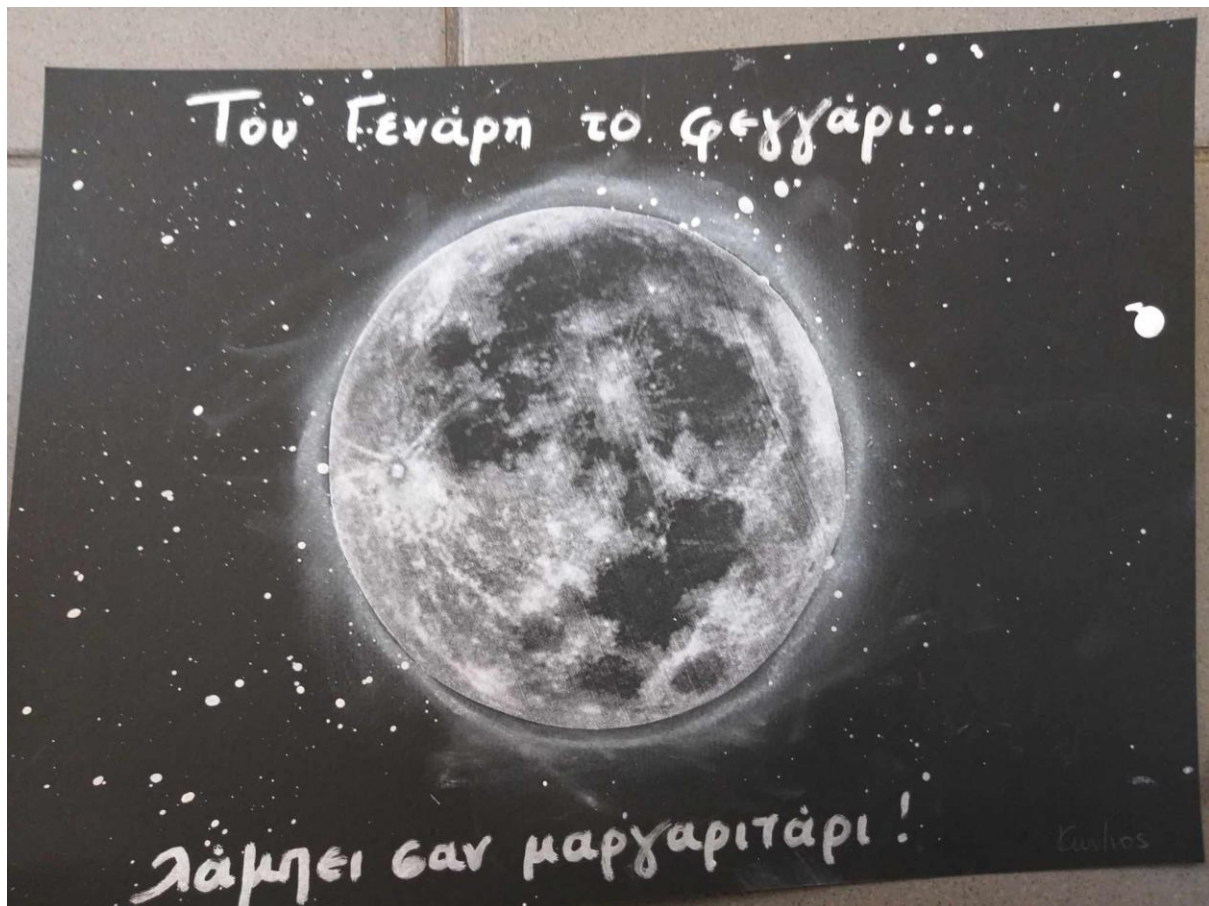 Του Γενάρη το φεγγάρι...
λάμπει σαν μαργαριτάρι!